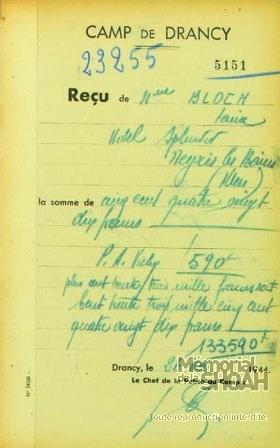 CAMP DE DRANCY
23255
5151
Reçu de Mme BLOCH
Hotel Splendid
Neyris les Bains
la somme de cinq cent quatre vingt
dix francs
P. A. Vichy 590f
plus cent trente trois mille francs soit
cent trente trois mille cinq cent
quatre vingt dix francs
133590f
Drancy, le 1944
Le Chef de la Police du Camp
Mémorial
de la SHOAH
Toute reproduction interdite